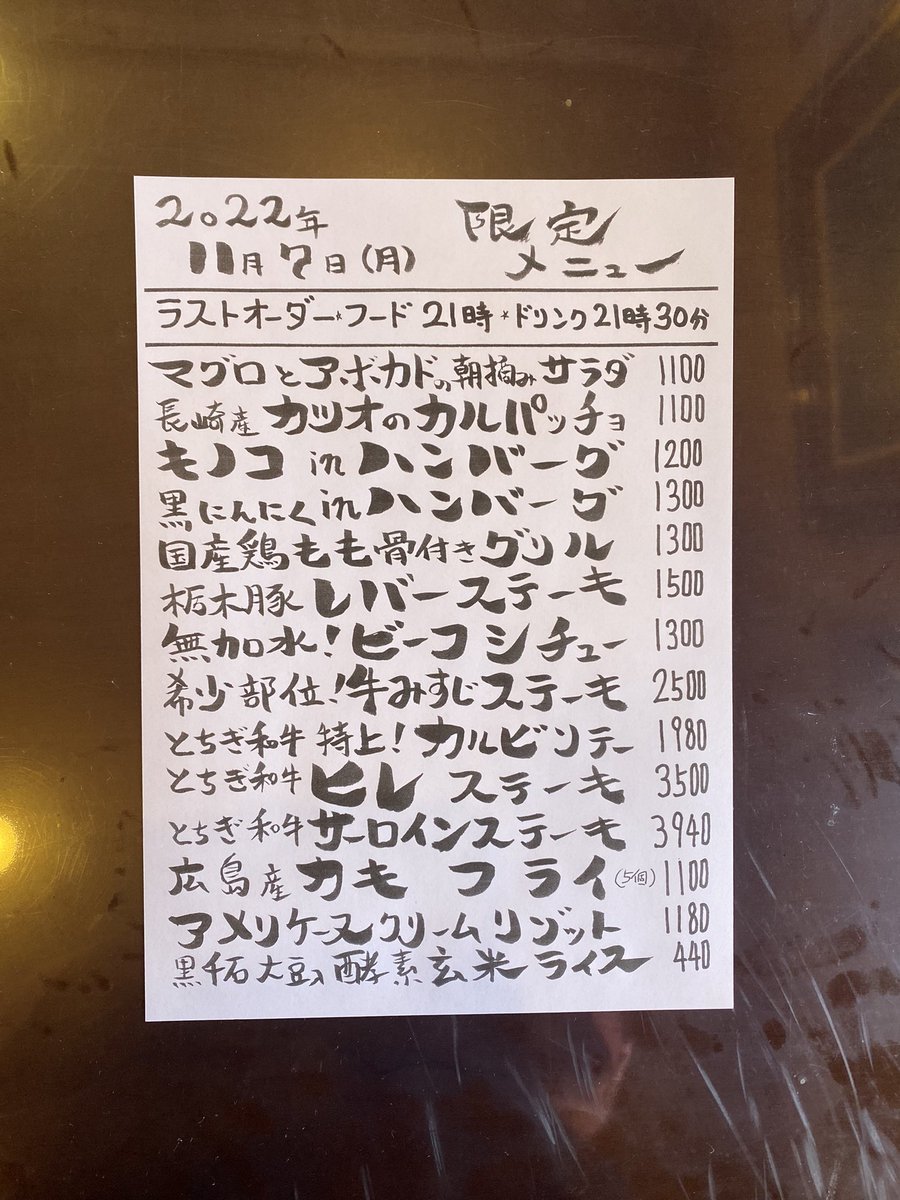 2022年 限定
11月7日(月) メニュー
ラストオーダー*フード 21時*ドリンク21時30分
マグロとアボカドの朝摘みサラダ 1100
長崎産 カツオのカルパッチョ 1100
キノコ in ハンバーグ 1200
黒にんにく in ハンバーグ 1300
国産鶏もも骨付きグリル 1300
栃木豚 レバーステーキ 1500
無加水!ビーフシチュー 1300
希少部位!牛みすじステーキ 2500
とちぎ和牛 特上!カルビソテー 1980
とちぎ和牛 ヒレ ステーキ 3500
とちぎ和牛 サーロインステーキ 3940
広島産 カキ フライ(5個) 1100
アメリケーヌクリームリゾット 1180
黒千石大豆酵素玄米ライス 440